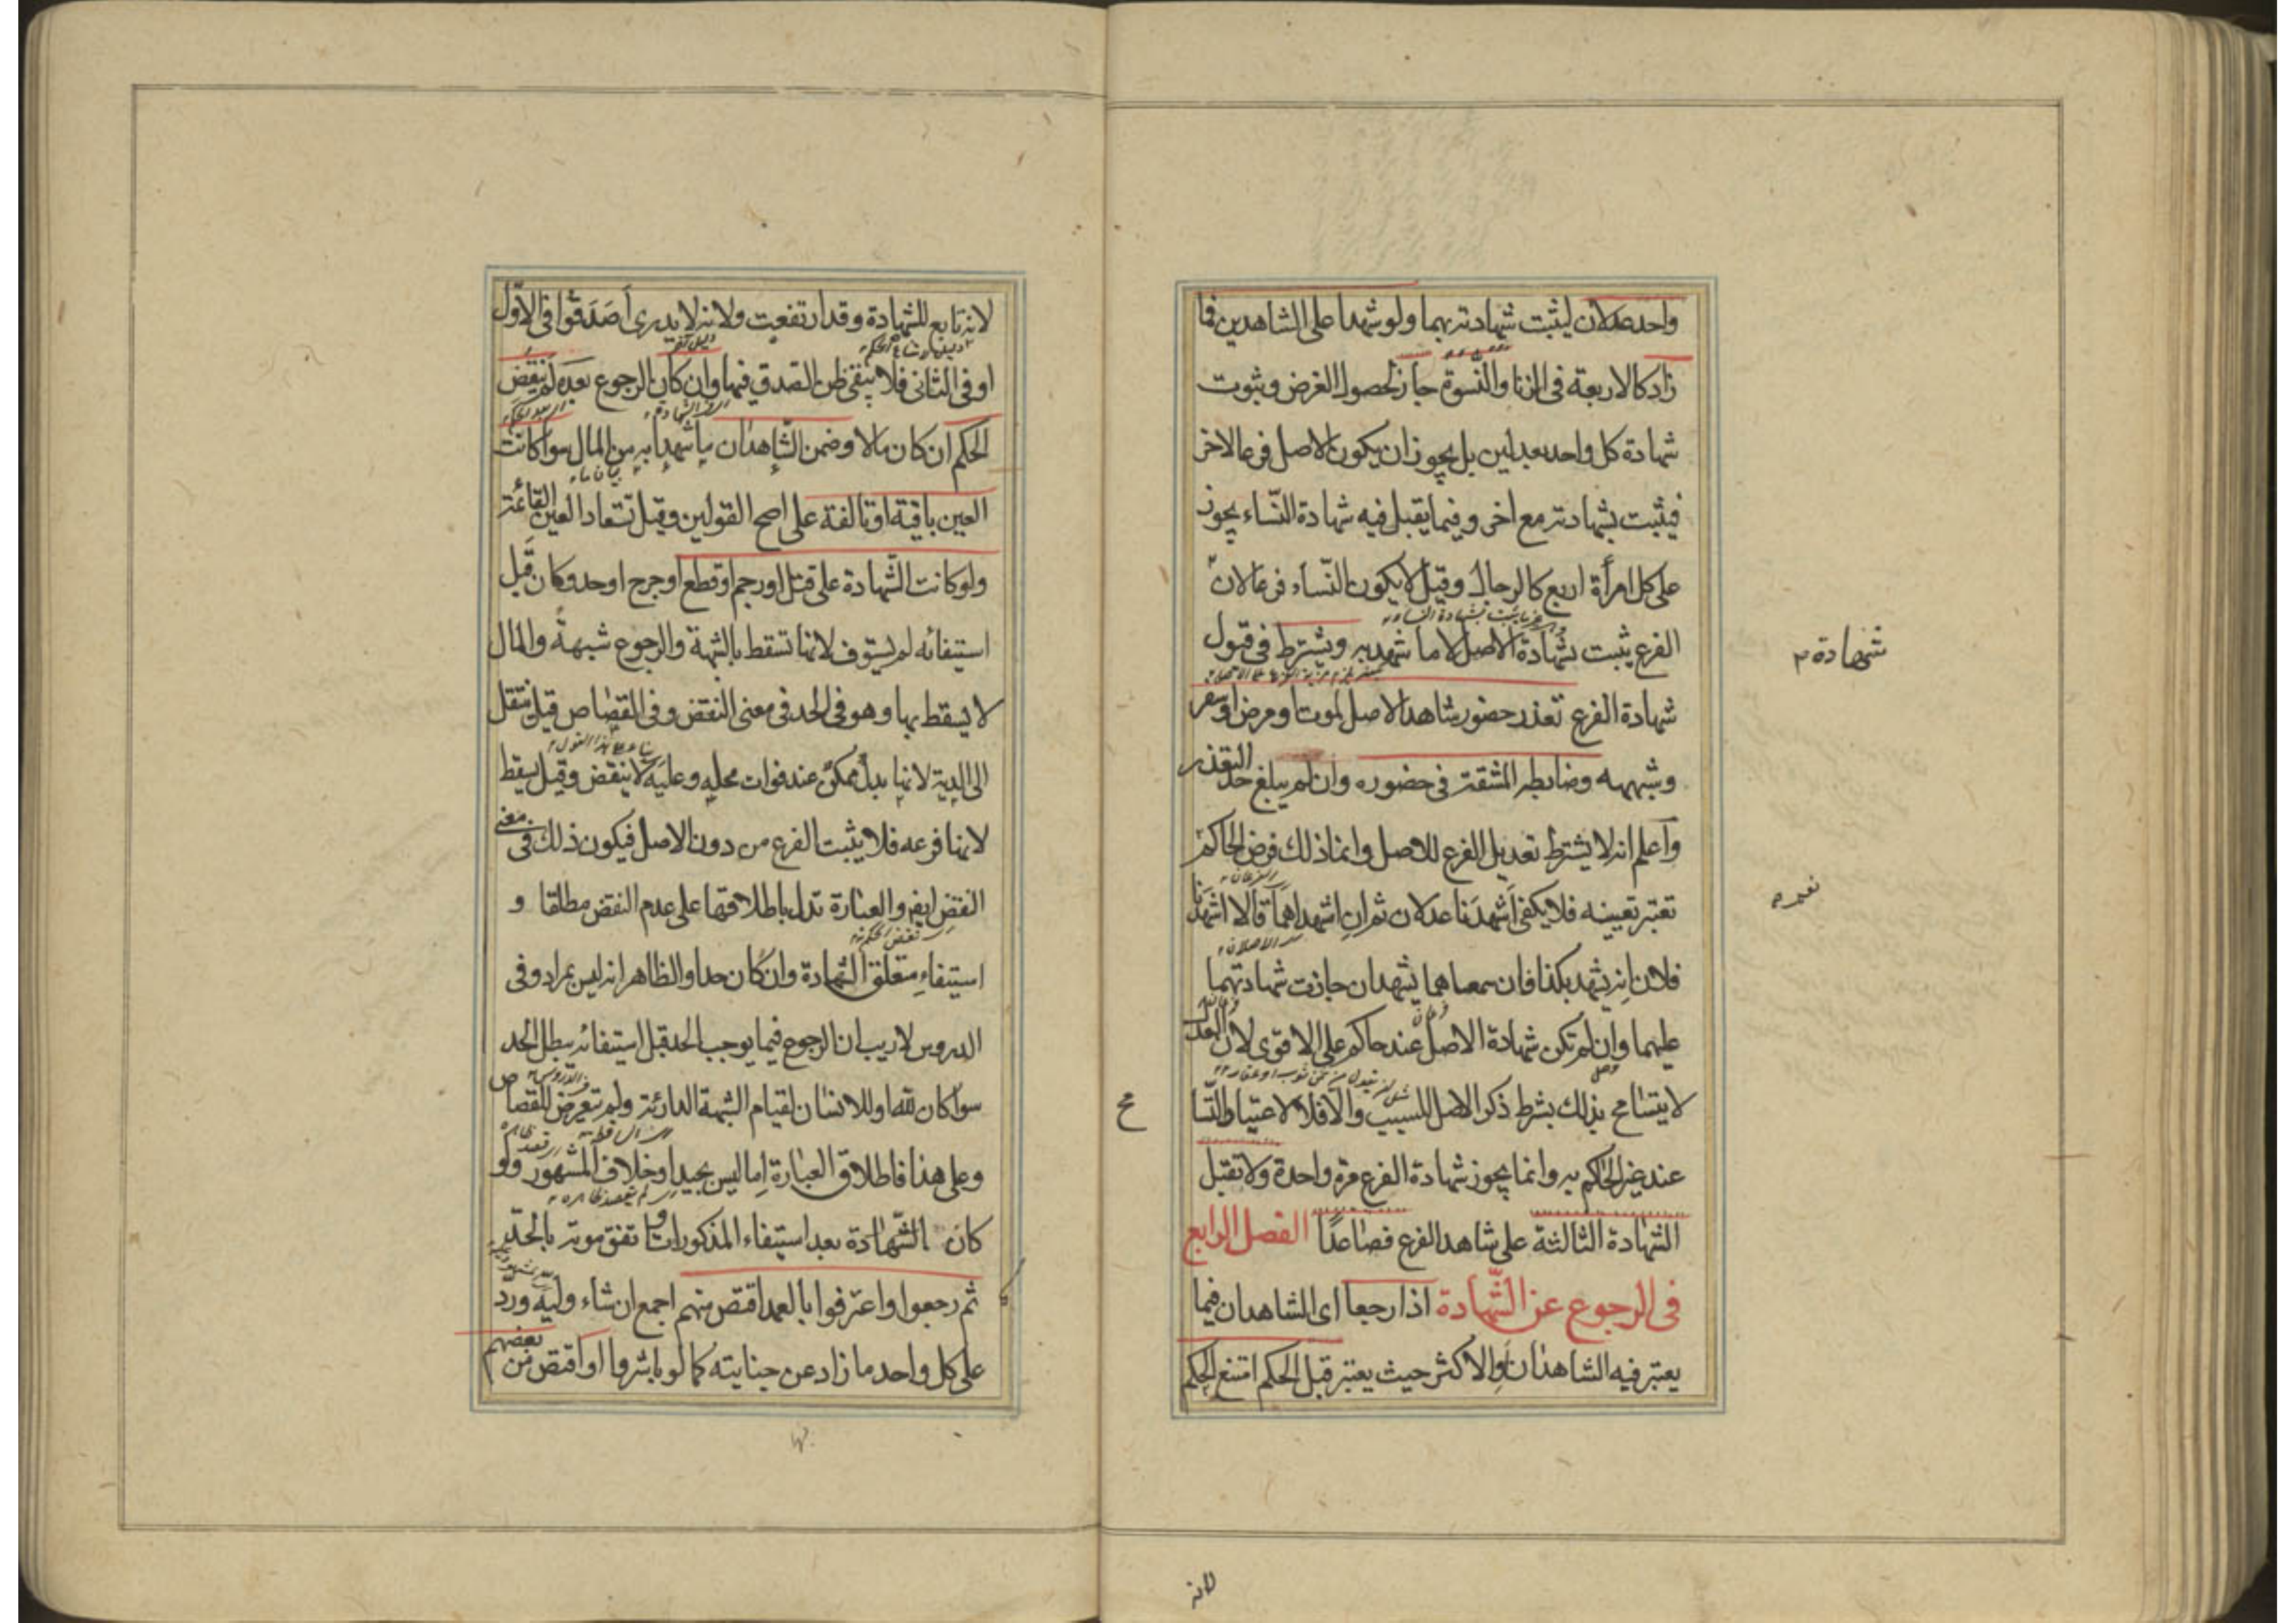 واحد عدلان ليثبت شهادته بهما ولو شهدا على الشاهدين فما
زاد كالاربعة في الزنا والنسوة جاز لحصول الغرض وثبوت
شهادة كل واحد بعدلين بل يجوز ان يكون الاصل فرعا لاخر
فيثبت بشهادته مع اخر وفيما يقبل فيه شهادة النّساء يجوز
على كل امرأة اربع كالرجال وقيل لا يكون النّساء فرعا لان
الفرع يثبت شهادة الاصل لا ما شهد به ويشترط في قبول
شهادة الفرع تعذر حضور شاهد الاصل لموت او مرض او سفر
وشبهه وضابطه المشقة في حضوره وان لم يبلغ حد التعذر
واعلم انه لا يشترط تعديل الفرع للاصل وانما ذلك فرض الحاكم
تعتبر تعيينه فلا يكفى اشهدنا عدلان ثم ان اشهداهما قالا اشهدنا
فلان انه يشهد بكذا فان سمعاهما يشهدان جازت شهادتهما
عليهما وان لم تكن شهادة الاصل عند حاكم على الاقوى لان العدل
لا يتسامح بذلك بشرط ذكر الاصل للسبب والا فلا لاعتياد التسا
مح
عند غير الحاكم به وانما يجوز شهادة الفرع مرة واحدة ولا تقبل
الشهادة الثالثة على شاهد الفرع فصاعدًا الفصل الرابع
في الرجوع عن الشّهادة اذا رجعا اى الشاهدان فيما
يعتبر فيه الشاهدان والاكثر حيث يعتبر قبل الحكم امتنع الحكم
شهادة
لانه
لانه تابع للشهادة وقد ارتفعت ولانه لا يدرى أصَدَقُوا في الاوّل
او في الثانى فلا يبقى ظن الصدق فيها وان كان الرجوع بعده لم ينقض
الحكم ان كان مالا وضمن الشاهدان ما شهدا به من المال سواء كانت
العين باقية او تالفة على اصح القولين وقيل تستعاد العين القائمة
ولو كانت الشّهادة على قتل او رجم او قطع او جرح او حد وكان قبل
استيفائه لم يستوف لانها تسقط بالشبهة والرجوع شبهةً والمال
لا يسقط بها وهو في الحد في معنى النقض وفي القصاص قيل ينتقل
الى الدية لانها بدل ممكن عند فوات محله وعليه لا ينقض وقيل يسقط
لانها فرعه فلا يثبت الفرع من دون الاصل فيكون ذلك في معنى
النقض ايضا والعبارة تدل باطلاقها على عدم النقض مطلقا و
استيفاء متعلق الشهادة وان كان حدا والظاهر انه ليس بمراد وفي
الدروس لا ريب ان الرجوع فيما يوجب الحد قبل استيفائه يبطل الحد
سواء كان لله او للانسان لقيام الشبهة الدارئة ولم يتعرض للقصاص
وعلى هذا فاطلاق العبارة اما ليس بجيد او خلاف المشهور ولو
كان الشّهادة بعد استيفاء المذكورات واتفق موته بالحدّ
ثم رجعوا واعترفوا بالعمد اقتص منهم اجمع ان شاء وليه ورد
على كل واحد ما زاد عن جنايته كما لو باشروا او اقتص من بعضهم